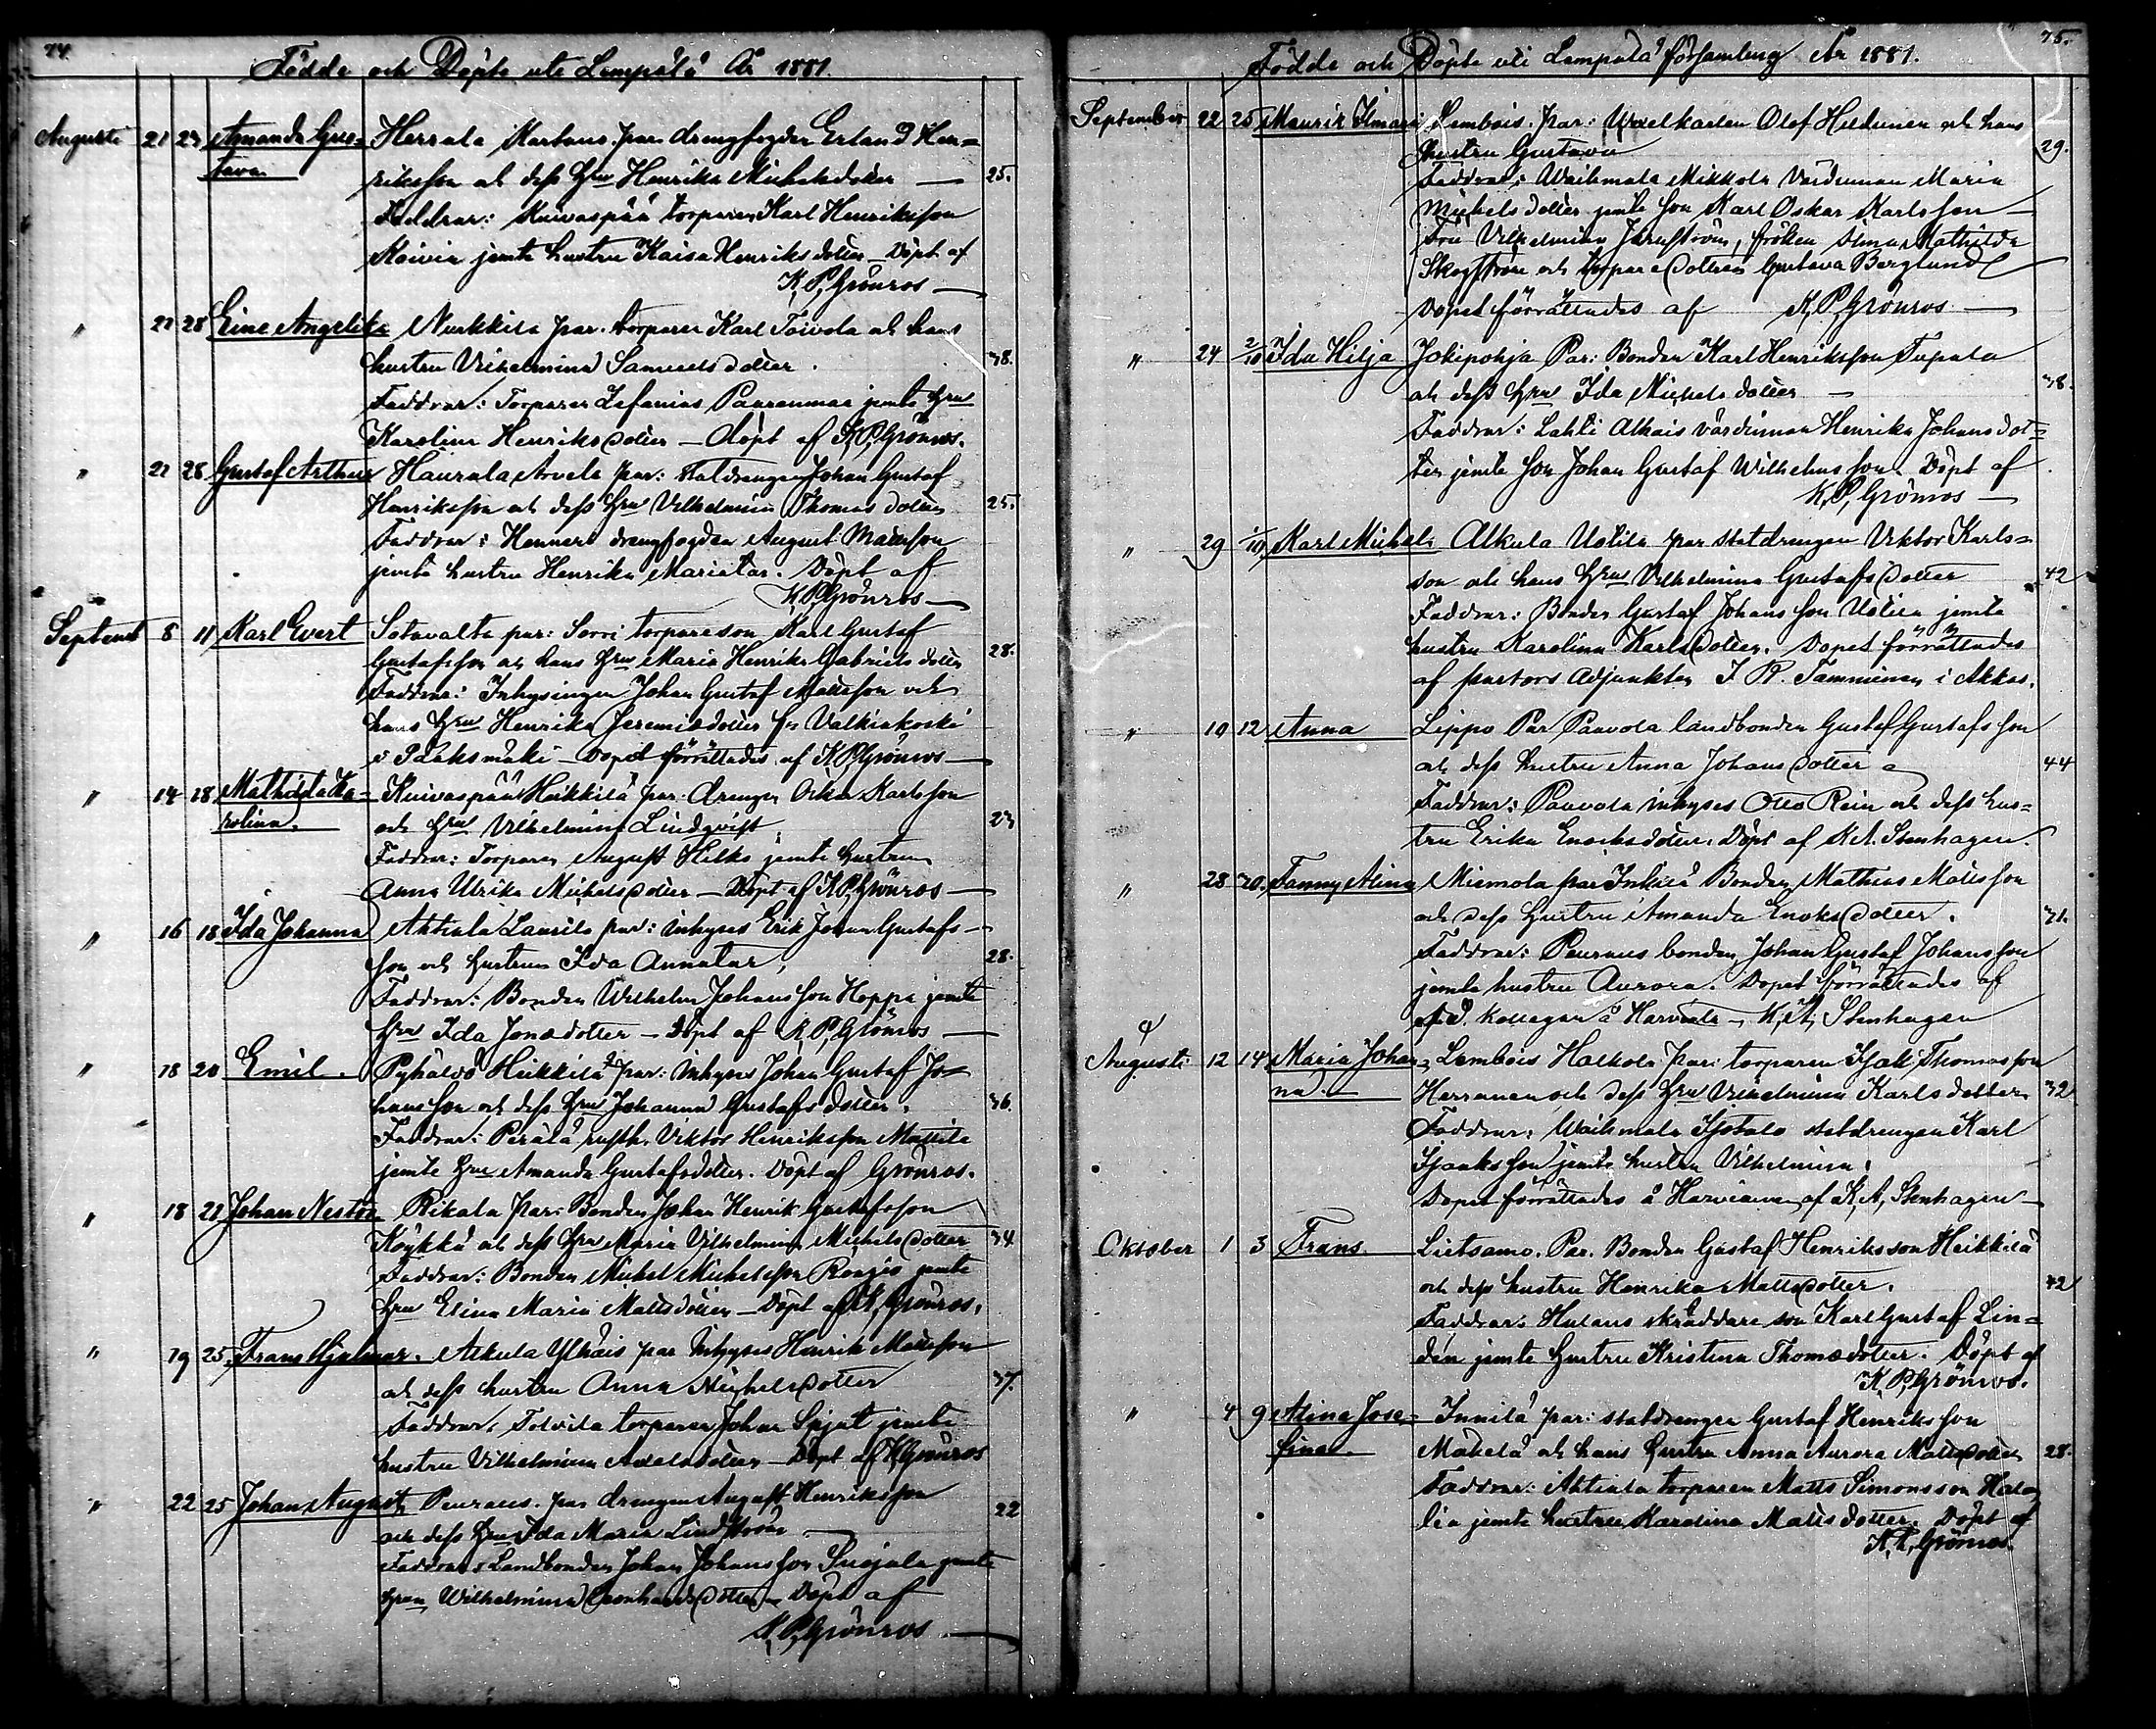 74.
Födde och Döpte uti Lempälä År 1881.
Augusti 21 23 Amanda Gus= Herrala Kartano. par. drengfogden Erland Hen=
tava. riksson och dess Hru Henrika Michelsdotter — 25.
Faddrar: Kuivaspää torparen Karl Henriksson
Koivia jemte hustru Kaisa Henriksdotter — Döpt af
K. P. Grönros —
" 27 28 Eine Angelika Nurkkila par. torparen Karl Toivola och hans
hustru Vilhelmina Samuelsdotter. 38.
Faddrar: Torparen Zefanias Paarenmaa jemte Hru
Karolina Henriksdotter — döpt af K. P. Grönros.
" 27 28 Gustaf Arthur Haurala Arvela par: statdrengen Johan Gustaf
Henriksson och dess Hru Vilhelmina Thomasdotter 25.
Faddrar: Henneri drengfogden August Mattsson
jemte hustru Henrika Mariatar. Döpt af
K. P. Grönros —
Septemb 8 11 Karl Evert Sotavalta par: Sorri torpareson Karl Gustaf
Gustafsson och hans Hru Maria Henrika Gabrielsdotter 28.
Faddrar: Inhysingen Johan Gustaf Mattsson och
hans Hru Henrika Jeremiædotter fr. Valkiakoski
i Sääksmäki — Dopet förrättades af K. P. Grönros —
" 14 18 Mathilda Ka- Kuivaspää Heikkilä par. drengen Oskar Karlsson
rolina. och Hru Vilhelmina Lindqvist. 23
Faddrar: Torparen August Hilko jemte hustru
Anna Ulrika Michelsdotter — Döpt af K. P. Grönros —
" 16 18 Ida Johanna Ahtiala Laurila par: inhyses Erik Johan Gustafs-
son och hustrun Ida Annatar, 28.
Faddrar: Bonden Wilhelm Johansson Hoppa jemte
Hru Ida Jonædotter — Döpt af K. P. Grönros —
" 18 20 Emil. Pyhältö Heikkilä par: inhyses Johan Gustaf Jo-
hansson och dess Hru Johanna Gustafsdotter. 36.
Faddrar: Perälä rusth. Viktor Henriksson Mattila
jemte Hru Amanda Gustafsdotter. Döpt af Grönros.
" 18 21 Johan Nestor Rikala par: Bonden Johan Henrik Gustafsson
Köykkä och dess Hru Maria Vilhelmina Michelsdotter 34
Faddrar: Bonden Michel Michelsson Ronjio jemte
Hru Elina Maria Mattsdotter — Döpt af K. P. Grönros.
" 19 25 Frans Hjalmar. Alkula Ylhäis par inhyses Henrik Mattsson
och dess hustru Anna Michelsdotter 37.
Faddrar: Tolvila torparen Johan Spjut jemte
hustru Vilhelmina Adelsdotter — Döpt af K. P. Grönros
" 22 25 Johan August, Peuraus. par drengen August Henriksson
och dess Hru Ida Maria Lindström — 22
Faddrar: Landbonden Johan Johansson Suojala jemte
Hru Wilhelmina Leonhardsdotter — Döpt af
K. P. Grönros. —
75.
Födde och Döpte uti Lempälä församling År 1881.
September 22 25 Maurix Ilmari Lembois. par: Waelkarlen Olof Heldunen och hans
hustru Gustava 29.
Faddrar: Waihmala Mikkola värdinnan Maria
Michelsdotter jemte son Karl Oskar Karlsson —
Fru Vilhelmina Järnström, fröken Alma Mathilda
Skogström och torparedottren Gustava Berglund
Dopet förrättades af K. P. Grönros —
" 24 2/10 Ida Hilja Jokipohja Par: Bonden Karl Henriksson Tupala
och dess Hru Ida Michelsdotter — 38.
Faddrar: Lahti Alhais värdinnan Henrika Johansdot=
ter jemte son Johan Gustaf Wilhelmsson. Döpt af
K. P. Grönros —
" 29 1/10 Karl Michel. Alkula Uotila par statdrengen Viktor Karls=
son och hans Hru Vilhelmina Gustafsdotter 42
Faddrar: Bonden Gustaf Johansson Uotila jemte
hustru Karolina Karlsdotter. Dopet förrättades
af pastors adjunkten J. R. Tamminen i Akkas.
" 10 12 Anna Lippo Par Paavola landbonden Gustaf Gustafsson
och dess hustru Anna Johansdotter 44
Faddrar: Paavola inhyses Otto Rein och dess hus=
tru Erika Enoksdotter. Döpt af K. A. Stenhagen.
" 28 30. Fanny Alina Miemola par Inkilä Bonden Mathias Mattsson
och dess hustru Amanda Enoksdotter. 31.
Faddrar: Peuraus bonden Johan Gustaf Johansson
jemte hustru Aurora. Dopet förrättades af
v. d. Kollegan å Harviala — K. A. Stenhagen
Augusti 12 14 Maria Johan- Lembois Halkola par: torparen Isak Thomasson
na. — Herranen och dess Hru Vilhelmina Karlsdotter 32
Faddrar: Waihmala Isotalo statdrengen Karl
Isaaksson jemte hustru Vilhelmina.
Dopet förrättades å Harviala af K. A. Stenhagen —
Oktober 1 3 Frans. Lietsamo. Par. Bonden Gustaf Henriksson Heikkilä
och dess hustru Henrika Mattsdotter. 42
Faddrar: Hulaus skräddare son Karl Gustaf Lin=
dén jemte hustru Kristina Thomædotter. Döpt af
K. P. Grönros.
" 4 9 Alina Jose- Innilä par: statdrengen Gustaf Henriksson
fina. Mäkelä och hans hustru Anna Aurora Mattsdotter 28.
Faddrar: Ahtiala torparen Matts Simonsson Hala
lia jemte hustru Karolina Mattsdotter. Döpt af
K. P. Grönros.